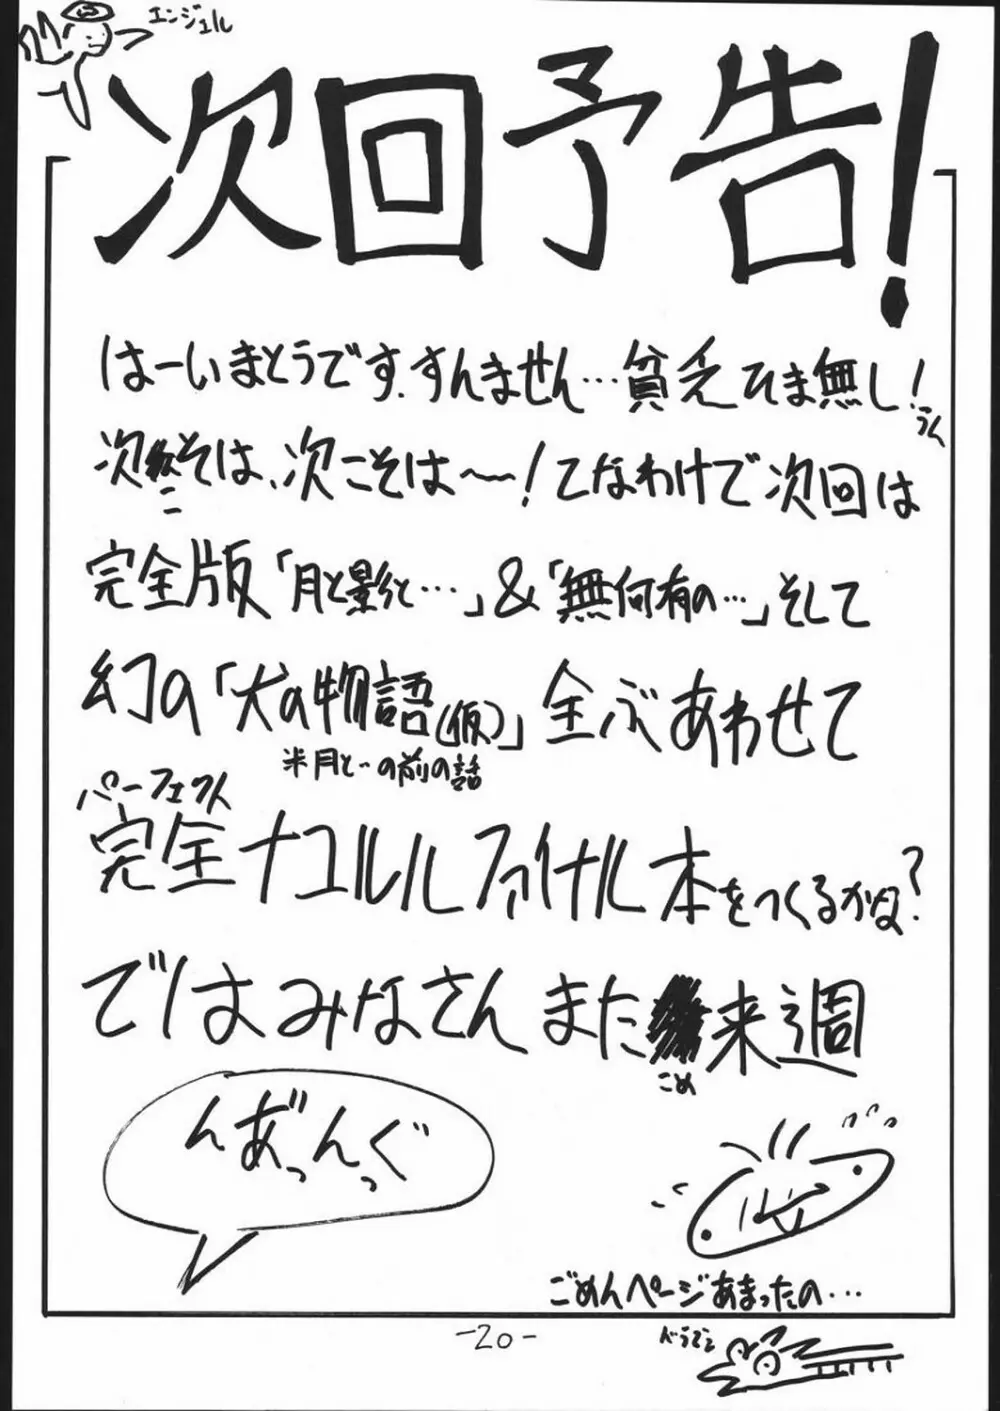 エンジェル
次回予告!
はーいまとうです.すんません…貧乏ひま無し!
うん
次こそは、次こそは〜!てなわけで次回は
完全版「月と影と…」&「無何有の…」そして
幻の「犬の物語(仮)」全ぶあわせて
半月と…の前の話
パーフェクト
完全ナコルルファイナル本をつくるかな?
ではみなさんまた来週
こめ
んあ゛っんっぐ
ごめんページあまったの…
-20-